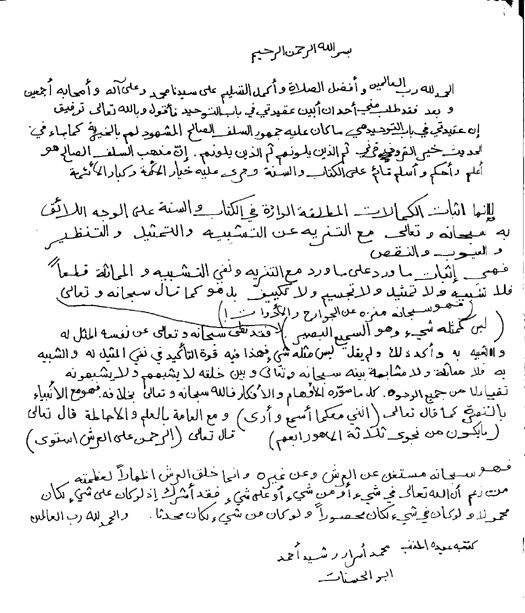 بسم الله الرحمن الرحيم
الحمد لله رب العالمين و أفضل الصلاة و أكمل التسليم على سيدنا محمد وعلى آله و أصحابه أجمعين
و بعد فقد طلب مني أحد ان أبين عقيدتي في باب التوحيد فأقول و بالله تعالى توفيق
إن عقيدتي في باب التوحيد هي ما كان عليه جمهور السلف الصالح المشهود لهم بالخيرية كما جاء في
الحديث خير القرون قرني ثم الذين يلونهم ثم الذين يلونهم. إن مذهب السلف الصالح هو
أعلم و أحكم و أسلم قائم على الكتاب و السنة و جرى عليه خيار الأمة و كبار الأئمة
إنما اثبات الكمالات المطلقة الواردة في الكتاب و السنة على الوجه اللائق
به سبحانه و تعالى مع التنزيه عن التشبيه و التمثيل و التنظير
و العيوب و النقص
فهي إثبات ما ورد على ما ورد مع التنزيه و نفي التشبيه و المماثلة قطعاً
فلا تشبيه و لا تمثيل و لا تجسيم و لا تكييف بل هو كما قال سبحانه و تعالى
(فهو سبحانه منزه عن الجوارح و الأدوات!)
(ليس كمثله شيء وهو السميع البصير) فقد نفى سبحانه و تعالى عن نفسه المثل له
و الشبيه به و أكد ذلك و لم يقل ليس مثله شيء فهذا فيه قوة التأكيد في نفي المثيل له و الشبيه
به فلا مماثلة و لا مشابهة بينه سبحانه و تعالى و بين خلقه لا يشبههم و لا يشبهونه
نفياً من جميع الوجوه. كل ما صوره الأفهام و الأفكار فالله سبحانه و تعالى بخلافه فهو مع الأنبياء
كما قال تعالى (انني معكما أسمع و أرى) و مع العامة بالعلم و الاحاطة قال تعالى
(ما يكون من نجوى ثلاثة الا هو رابعهم) قال تعالى (الرحمن على العرش استوى)
فهو سبحانه مستغن عن العرش و عن غيره و انما خلق العرش اظهاراً لعظمته
من زعم أن الله تعالى في شيء أو من شيء أو على شيء فقد أشرك إذ لو كان على شيء لكان
محمولا و لو كان في شيء لكان محصوراً و لو كان من شيء لكان محدثا. و الحمد لله رب العالمين
كتبه عبده المذنب محمد أسرار رشيد أحمد
ابو الحسنات